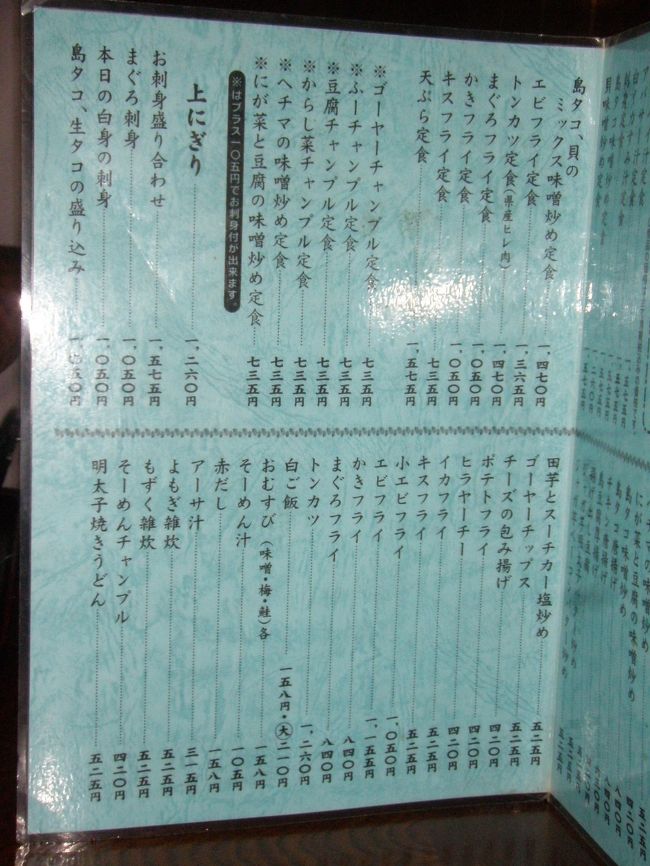 貝味噌炒め定食
にが菜と豆腐の味噌炒め
島タコ味噌炒め
島タコ唐揚げ
チキン唐揚げ
島豆腐厚揚げ
島タコ、貝の
ミックス味噌炒め定食 一、四七〇円
エビフライ定食 一、三六五円
トンカツ定食(県産ヒレ肉) 一、四七〇円
まぐろフライ定食 一、〇五〇円
かきフライ定食 一、〇五〇円
キスフライ定食 七三五円
天ぷら定食 一、五七五円
※ゴーヤーチャンプル定食 七三五円
※ふーチャンプル定食 七三五円
※豆腐チャンプル定食 七三五円
※からし菜チャンプル定食 七三五円
※ヘチマの味噌炒め定食 七三五円
※にが菜と豆腐の味噌炒め定食 七三五円
※はプラス一〇五円でお刺身付が出来ます。
上にぎり 一、二六〇円
お刺身盛り合わせ 一、五七五円
まぐろ刺身 一、〇五〇円
本日の白身の刺身 一、〇五〇円
島タコ、生タコの盛り込み 一、〇五〇円
田芋とスーチカー塩炒め 五二五円
ゴーヤーチップス 五二五円
チーズの包み揚げ 四二〇円
ポテトフライ 四二〇円
ヒラヤーチー 四二〇円
イカフライ 五二五円
キスフライ 五二五円
小エビフライ 一、〇五〇円
エビフライ 一、一五五円
かきフライ 八四〇円
まぐろフライ 八四〇円
トンカツ 一、二六〇円
白ご飯 一五八円・大二一〇円
おむすび(味噌・梅・鮭)各 一五八円
そーめん汁 一〇五円
赤だし 一五八円
アーサ汁 三一五円
よもぎ雑炊 五二五円
もずく雑炊 五二五円
そーめんチャンプル 四二〇円
明太子焼きうどん 五二五円